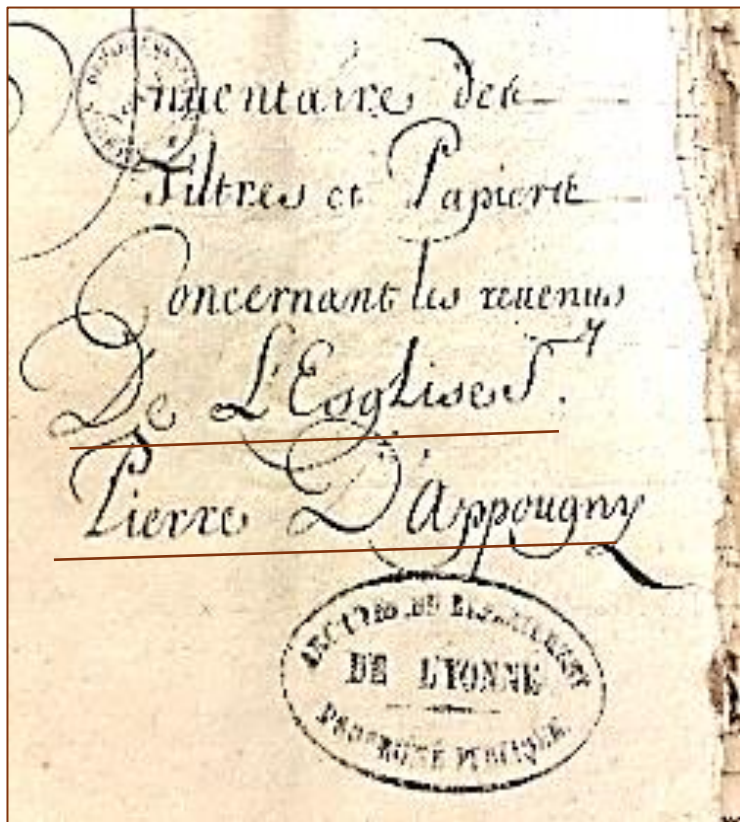 Inuentaire des
Tiltres et Papiers
Concernant les reuenus
De L'Esglise St.
Pierre D'Appougny
ARCHIVES DU DEPARTEMENT
DE L'YONNE
PROPRIETE PUBLIQUE